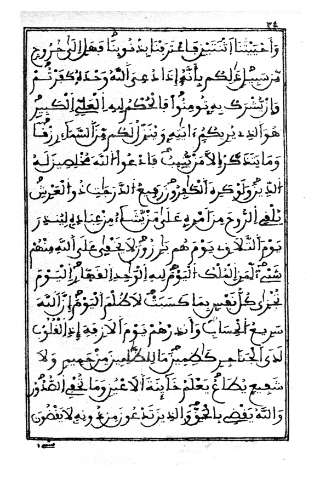 ٣٤
وأحييتنا اثنتين فاعترفنا بذنوبنا فهل إلى خروج
من سبيل ذلكم بأنه إذا دعي الله وحده كفرتم
وإن يشرك به تومنوا فالحكم لله العلي الكبير
هو الذي يريكم ءايته وينزل لكم من السماء رزقا
وما يتذكر إلا من ينيب فادعوا الله مخلصين له
الدين ولو كره الكفرون رفيع الدرجت ذو العرش
يلقي الروح من أمره على من يشاء من عباده لينذر
يوم التلاق يوم هم برزون لا يخفى على الله منهم
شيء لمن الملك اليوم لله الوحد القهار اليوم
تجزى كل نفس بما كسبت لا ظلم اليوم إن الله
سريع الحساب وأنذرهم يوم الازفة إذ القلوب
لدى الحناجر كظمين ما للظلمين من حميم ولا
شفيع يطاع يعلم خائنة الاعين وما تخفي الصدور
والله يقضي بالحق والذين تدعون من دونه لا يقضون